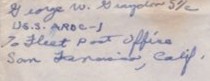 George W. Graydon S/c
U.S.S. ARDC-1
% Fleet Post Office
San Francisco, Calif.